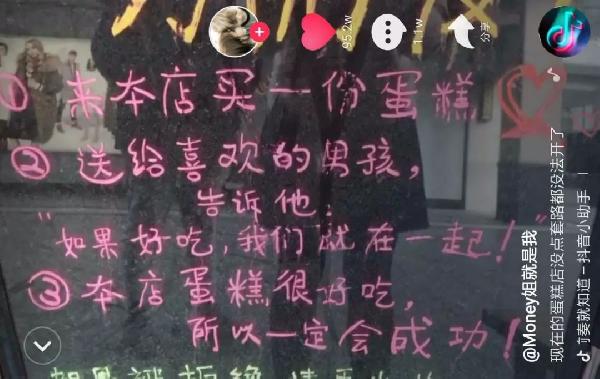 ① 来本店买一份蛋糕
② 送给喜欢的男孩，
告诉他：
“如果好吃，我们就在一起！”
③ 本店蛋糕很好吃，
所以一定会成功！
95.2w
1.1w
分享
@Money姐就是我
现在的蛋糕店没点套路都没法开了
奏就知道 - 抖音小助手